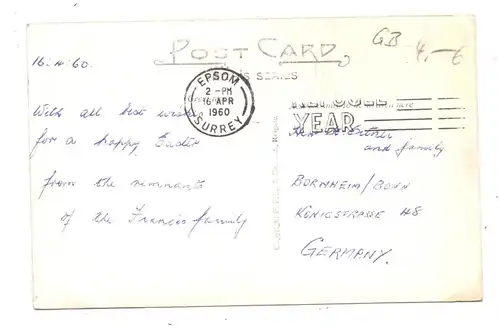 POST CARD
GB 4,-€
16.4.60.
EPSOM
2-PM
16 APR
1960
SURREY
YEAR
With all best wishes
for a happy Easter
from the remnants
of the Francis family
and family
BORNHEIM/BONN
KÖNIGSTRASSE 48
GERMANY.